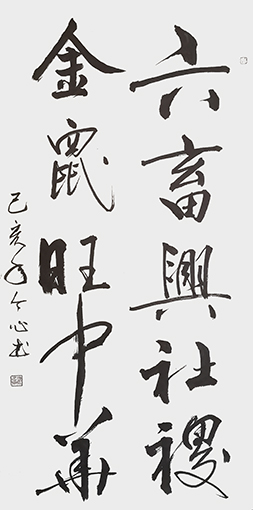 六畜興社稷
金鼠旺中華
己亥年心书